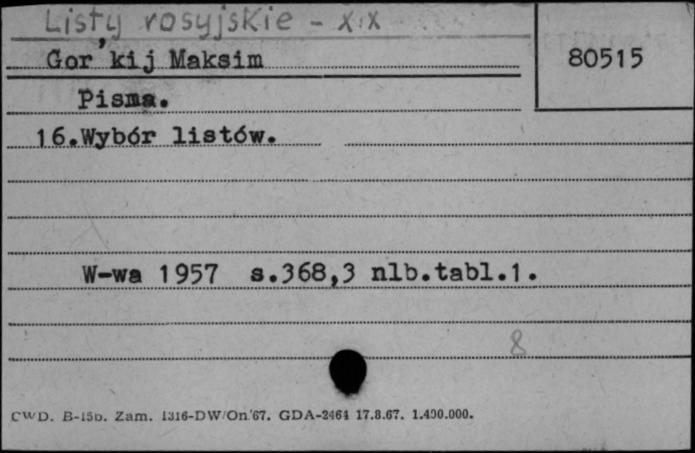 Listy rosyjskie - XIX
Gor'kij Maksim
80515
Pisma.
16.Wybór listów.
W-wa 1957 s.368,3 nlb.tabl.1.
8
CWD. B-15b. Zam. 1316-DW/On.'67. GDA-2464 17.8.67. 1.400.000.